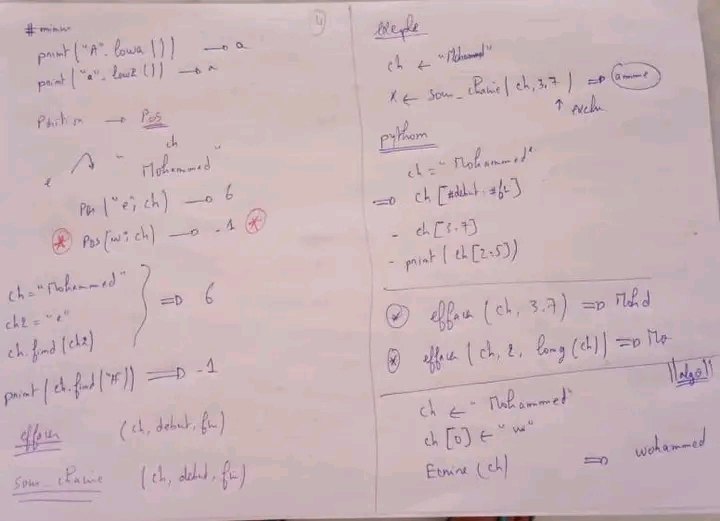 4
# minus
print("A".lower()) → a
print("a".lower()) → a
Position → Pos
ch
e "Mohammed"
Pos("e", ch) → 6
* Pos("w", ch) → -1 *
ch = "Mohammed"
ch2 = "e"
ch.find(ch2)
⇒ 6
print(ch.find("A")) ⇒ -1
effacer (ch, debut, fin)
sous_chaine (ch, debut, fin)
Exemple
ch ← "Mohammed"
x ← sous_chaine(ch,3,7) ⇒ amme
↑ exclu
python
ch = "Mohammed"
⇒ ch[#debut:#fin]
- ch[3:7]
- print(ch[2:5])
* effacer (ch, 3,7) ⇒ Mohd
* effacer (ch, 2, long(ch)) ⇒ Mo
||algo||
ch ← "Mohammed"
ch[0] ← "w"
Ecrire(ch) ⇒ wohammed